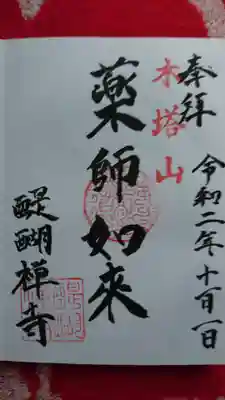 奉拜
令和二年十一月一日
木塔山
薬師如来
醍醐禅寺